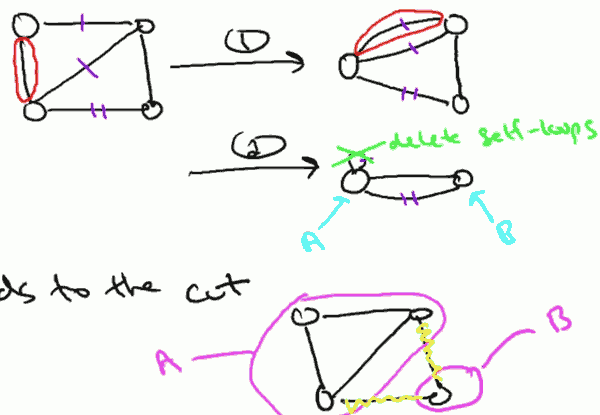 ①
②
delete self-loops
A
B
ds to the cut
A
B